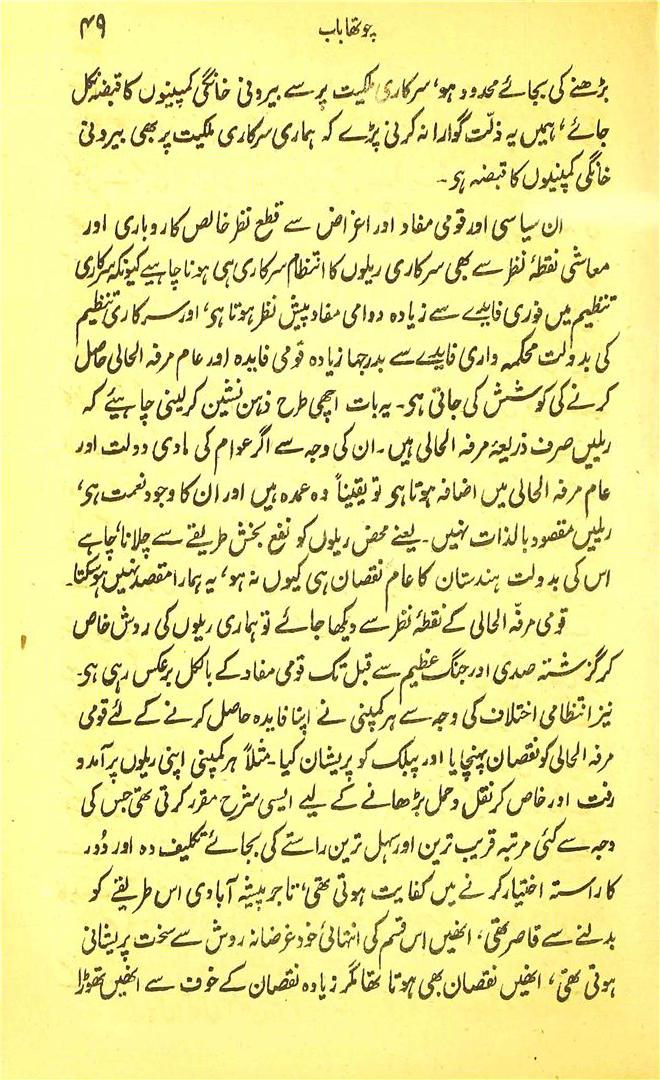 چوتھا باب
۴۹
بڑھنے کی بجائے محدود ہو، سرکاری ملکیت پر سے بیرونی خانگی کمپنیوں کا قبضہ نکل
جائے، ہمیں یہ ذلّت گوارا نہ کرنی پڑے کہ ہماری سرکاری ملکیت پر بھی بیرونی
خانگی کمپنیوں کا قبضہ ہو۔
ان سیاسی اور قومی مفاد اور اغراض سے قطع نظر خالص کاروباری اور
معاشی نقطۂ نظر سے بھی سرکاری ریلوں کا انتظام سرکاری ہی ہونا چاہیے کیونکہ سرکاری
تنظیم میں فوری فایدے سے زیادہ دوامی مفاد پیش نظر ہوتا ہو، اور سرکاری تنظیم
کی بدولت محکمہ واری فایدے سے بدرجہا زیادہ قومی فایدہ اور عام مرفہ الحالی حاصل
کرنے کی کوشش کی جاتی ہو۔ یہ بات اچھی طرح ذہن نشین کر لینی چاہیئے کہ
ریلیں صرف ذریعۂ مرفہ الحالی ہیں۔ ان کی وجہ سے اگر عوام کی مادی دولت اور
عام مرفہ الحالی میں اضافہ ہوتا ہو تو یقیناً وہ عمدہ ہیں اور ان کا وجود نعمت ہو،
ریلیں مقصود بالذات نہیں۔ یعنے محض ریلوں کو نفع بخش طریقے سے چلانا، چاہے
اس کی بدولت ہندستان کا عام نقصان ہی کیوں نہ ہو، یہ ہمارا مقصد نہیں ہو سکتا۔
قومی مرفّہ الحالی کے نقطۂ نظر سے دیکھا جائے تو ہماری ریلوں کی روش خاص
کر گزشتہ صدی اور جنگ عظیم سے قبل تک قومی مفاد کے بالکل برعکس رہی ہو۔
نیز انتظامی اختلاف کی وجہ سے ہر کمپنی نے اپنا فایدہ حاصل کرنے کے لئے قومی
مرفہ الحالی کو نقصان پہنچایا اور پبلک کو پریشان کیا۔ مثلاً ہر کمپنی اپنی ریلوں پر آمد و
رفت اور خاص کر نقل و حمل بڑھانے کے لیے ایسی شرح مقرر کرتی تھی جس کی
وجہ سے کئی مرتبہ قریب ترین اور سہل ترین راستے کی بجائے تکلیف دہ اور دُور
کا راستہ اختیار کرنے میں کفایت ہوتی تھی، تاجر پیشہ آبادی اس طریقے کو
بدلنے سے قاصر تھی، انھیں اس قسم کی انتہائی خود غرضانہ روش سے سخت پریشانی
ہوتی تھی، انھیں نقصان بھی ہوتا تھا مگر زیادہ نقصان کے خوف سے انھیں تھوڑا